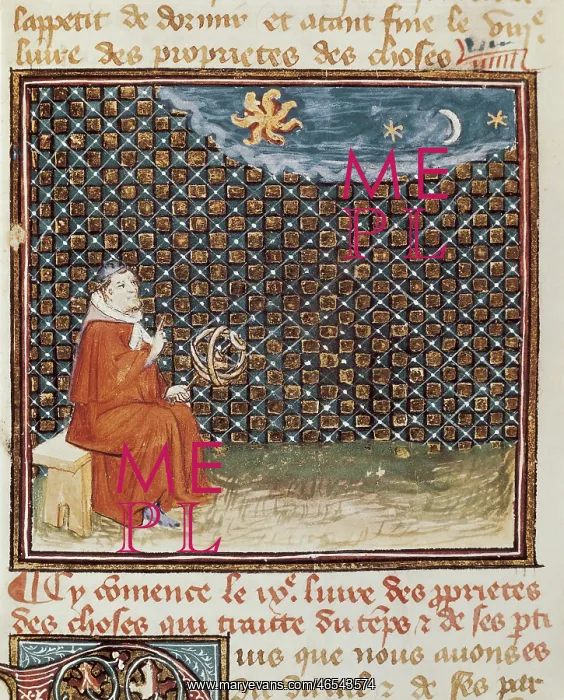 lappetit de dormir et atant fine le viii^e.
livre des proprietes des choses
ME
PL
ME
PL
Cy comence le ix^e. livre des pprietes
des choses qui traitte du tēps ⁊ de ses pti
uis que nous auons
⁊ de ses par
www.maryevans.com/46543574